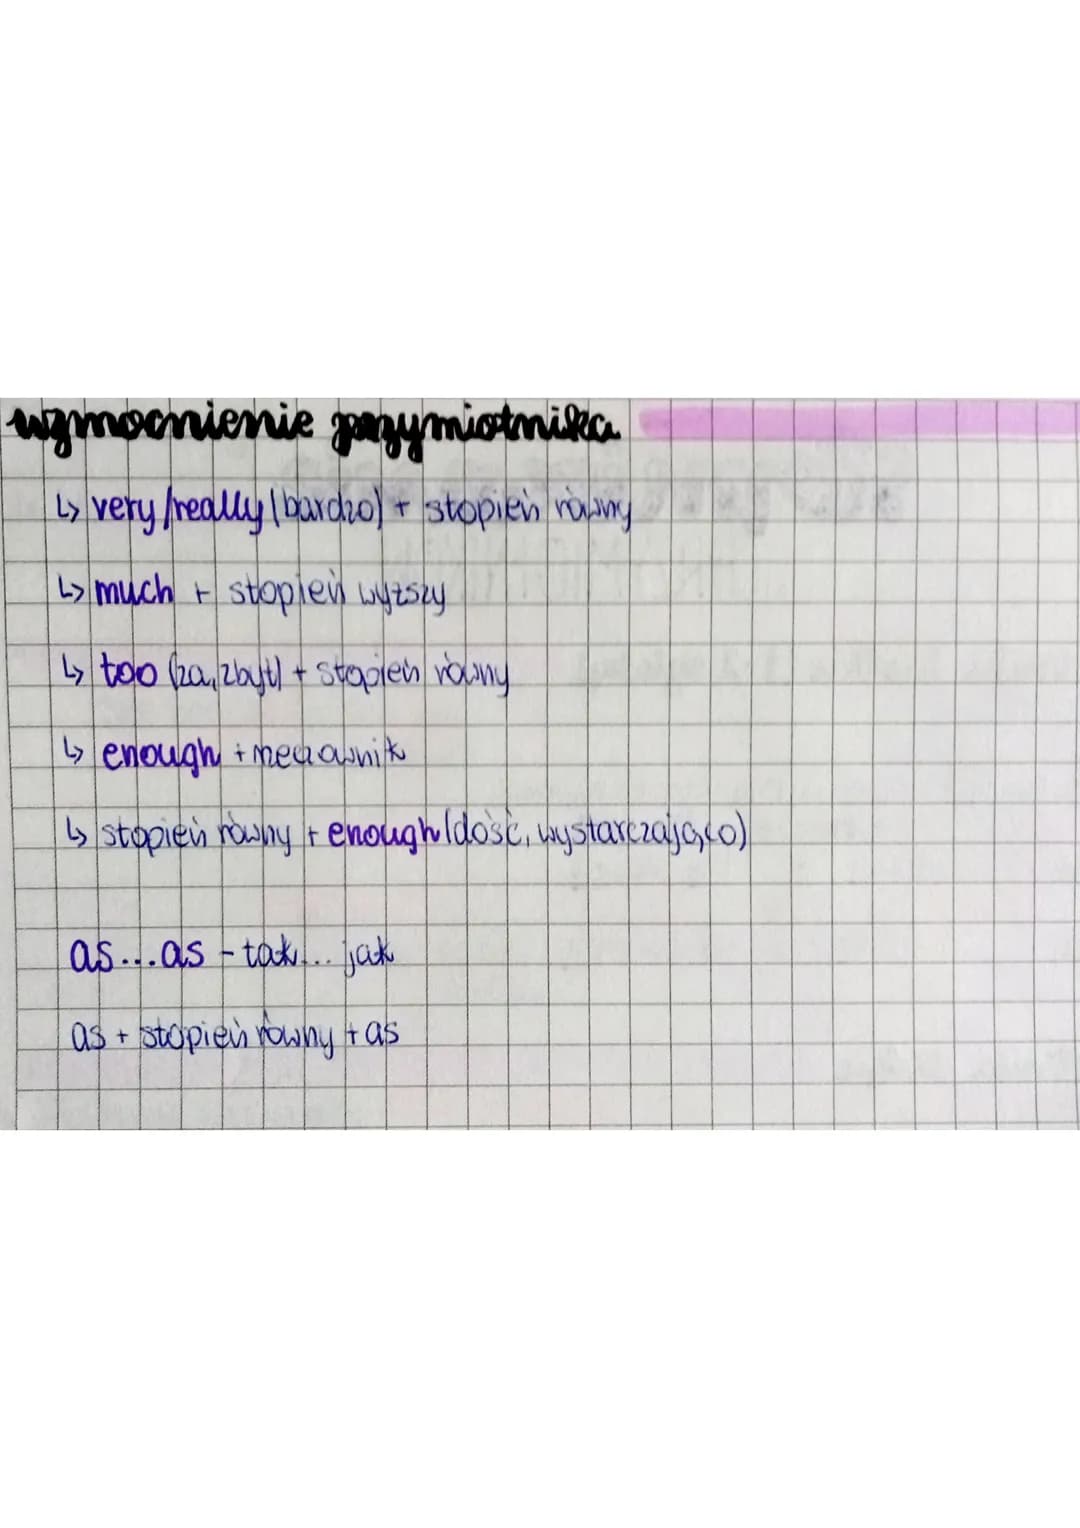 wzmocnienie przymiotnika
↳ very/really (bardzo) + stopień równy
↳ much + stopień wyższy
↳ too (za, zbyt) + stopień równy
↳ enough + rzeczownik
↳ stopień równy + enough (dość, wystarczająco)
as...as - tak... jak
as + stopień równy + as